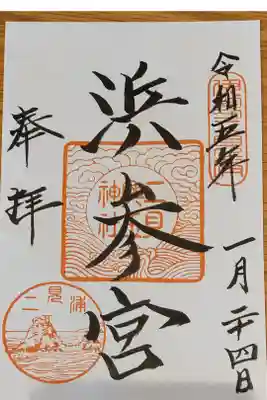 令和五年
一月二十四日
浜参宮
奉拝
二見
神社
二見浦